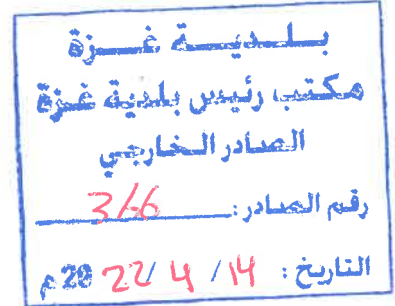 بلدية غزة
مكتب رئيس بلدية غزة
الصادر الخارجي
رقم الصادر: 366
التاريخ: 14 / 4 / 2022 م